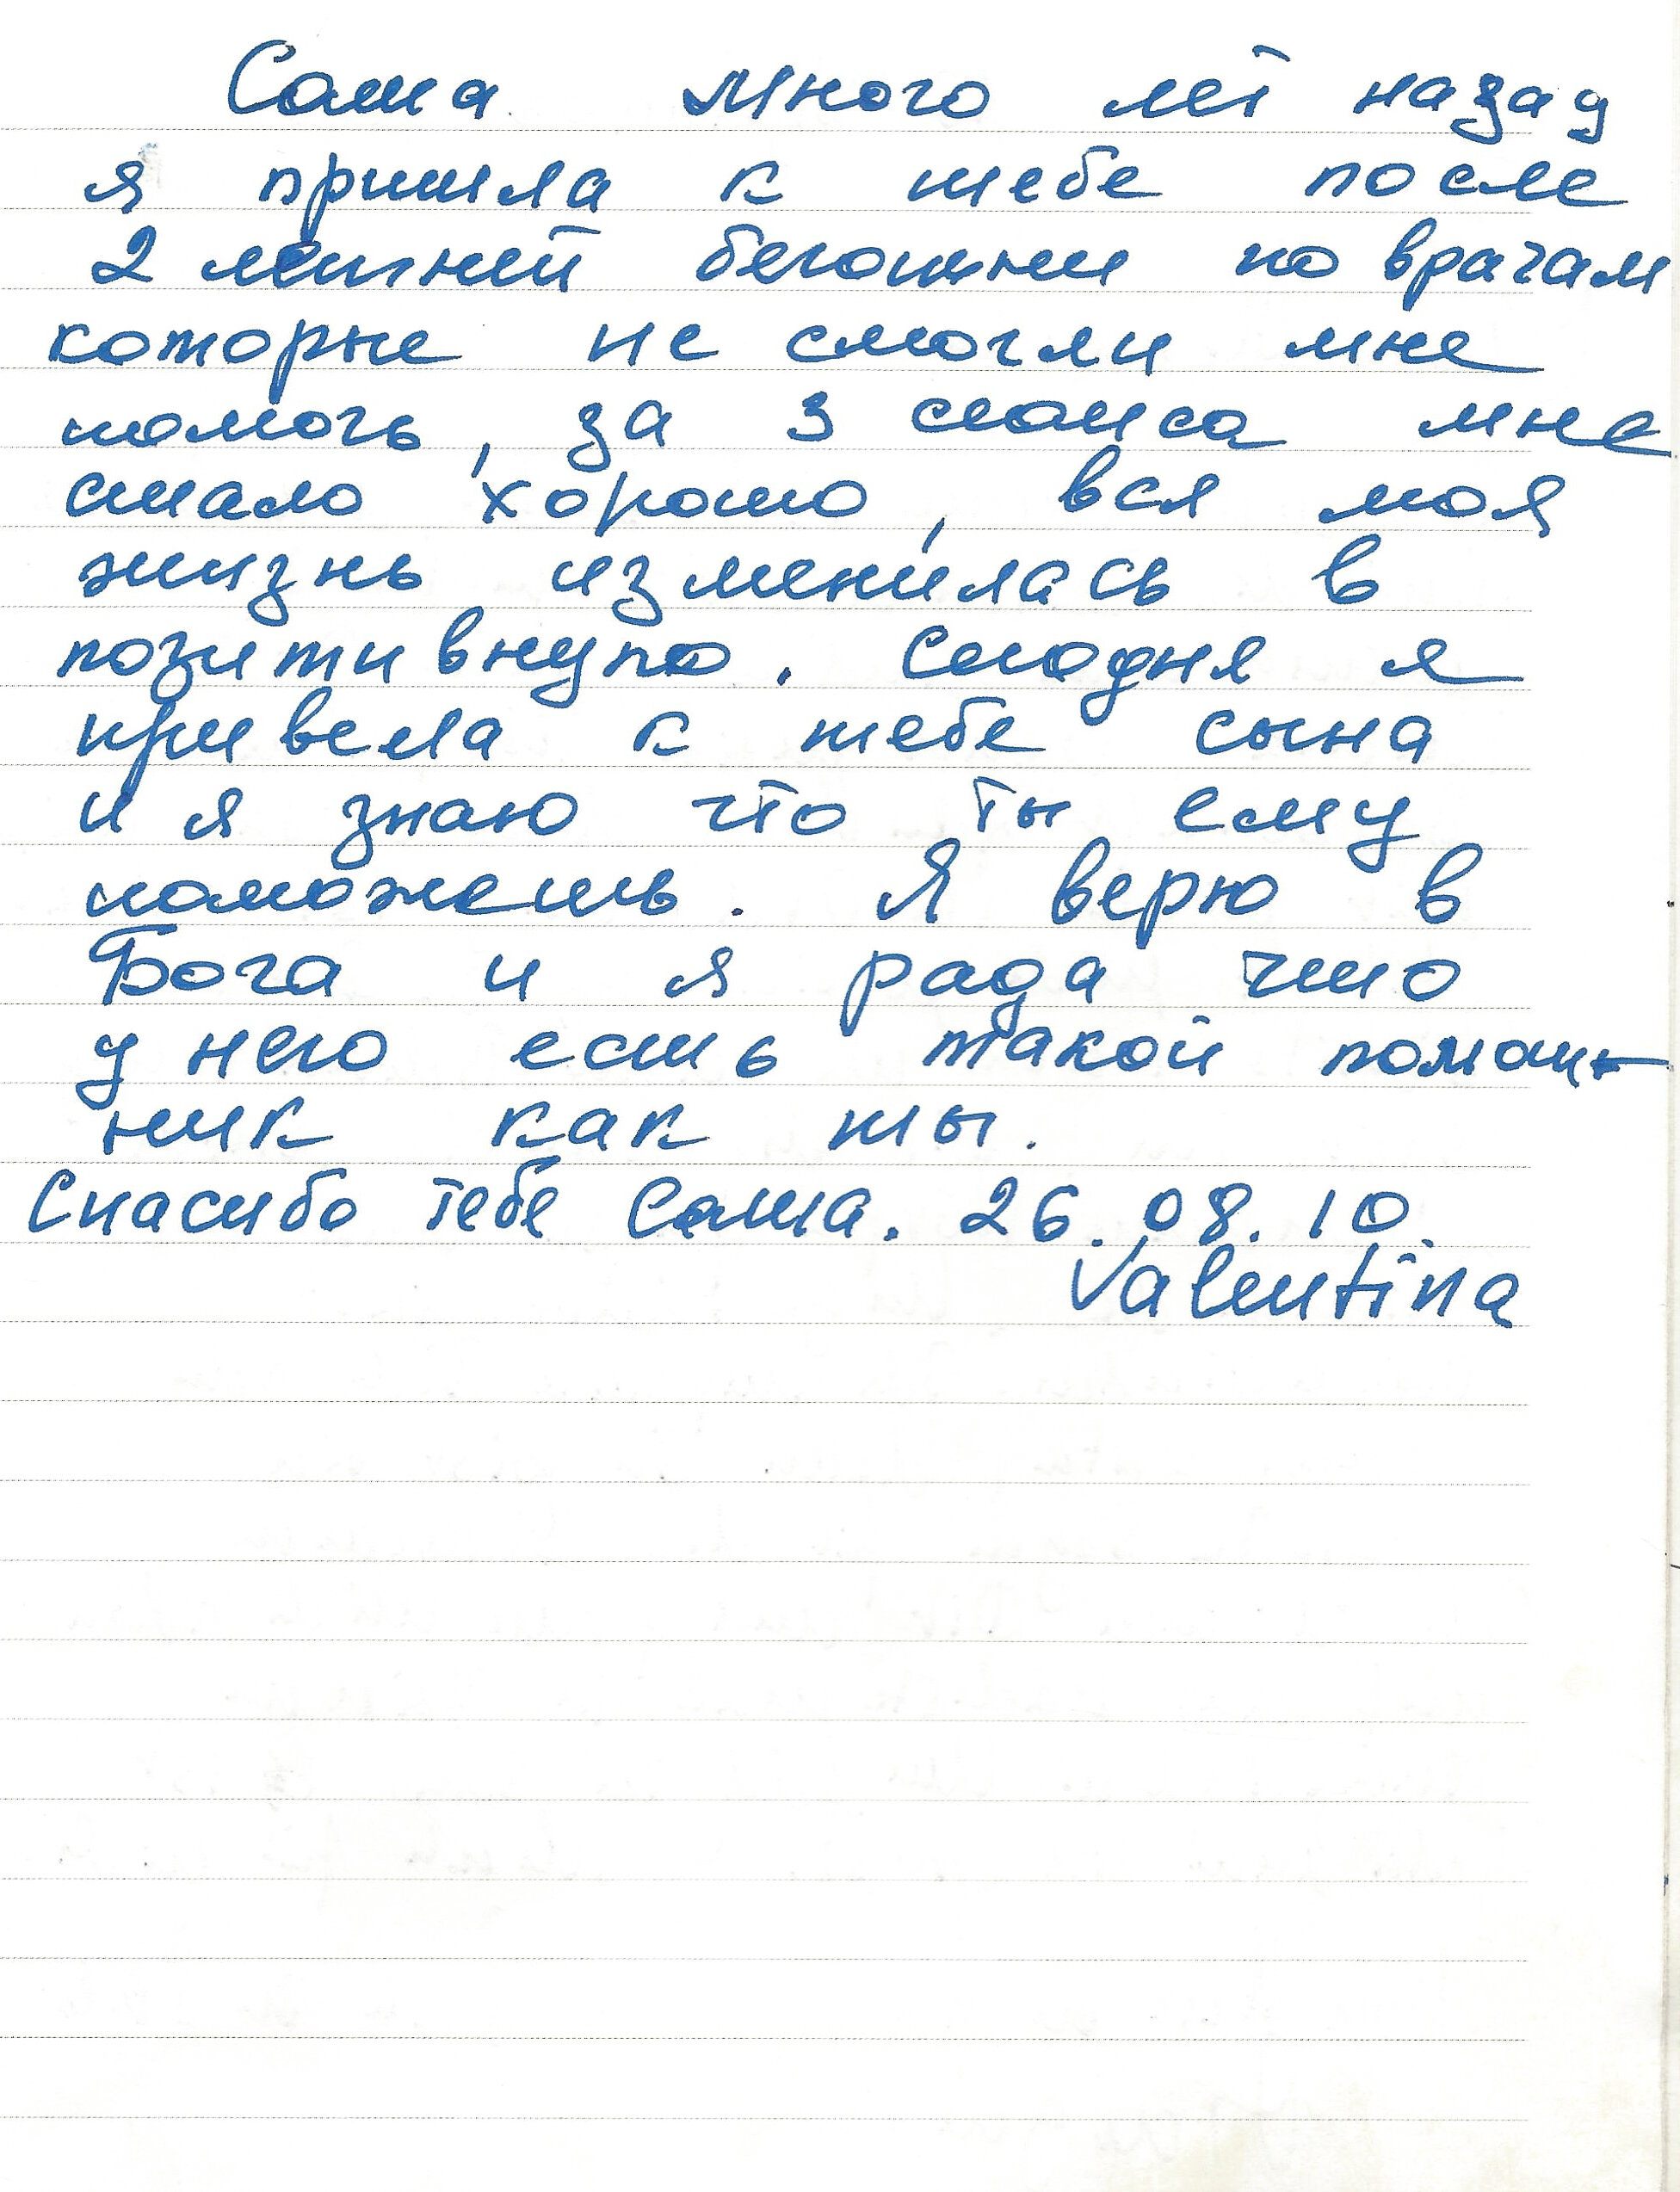 Саша много лет назад
я пришла к тебе после
2 летней беготни по врачам
которые не смогли мне
помочь, за 3 сеанса мне
стало хорошо, вся моя
жизнь изменилась в
позитивную. Сегодня я
привела к тебе сына
и я знаю что ты ему
поможешь. Я верю в
Бога и я рада что
у него есть такой помощ-
ник как ты.
Спасибо тебе Саша. 26.08.10.
Valentina